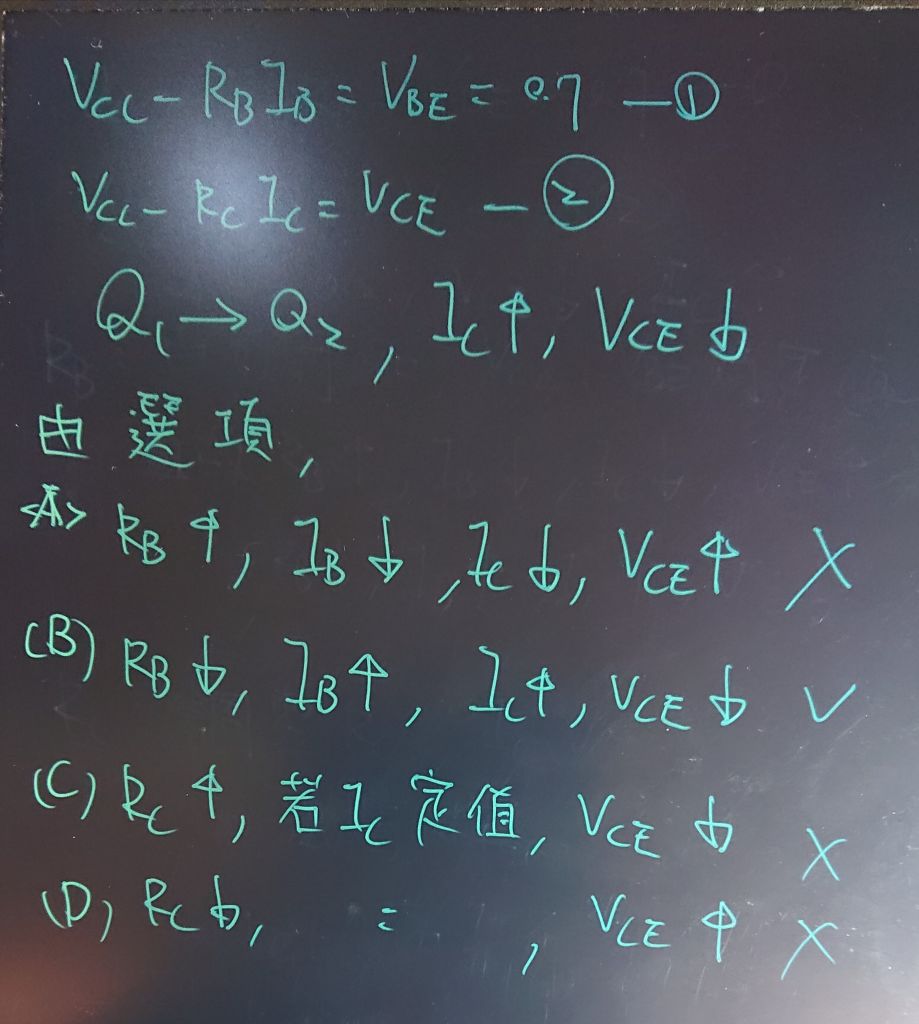 Vcc - RB IB = VBE = 0.7 —①
Vcc - Rc Ic = VCE —②
Q1 → Q2, Ic↑, VCE↓
由選項,
<A> RB↑, IB↓, Ic↓, VCE↑ X
(B) RB↓, IB↑, Ic↑, VCE↓ ✓
(C) Rc↑, 若Ic定值, VCE↓ X
(D) Rc↓, = , VCE↑ X